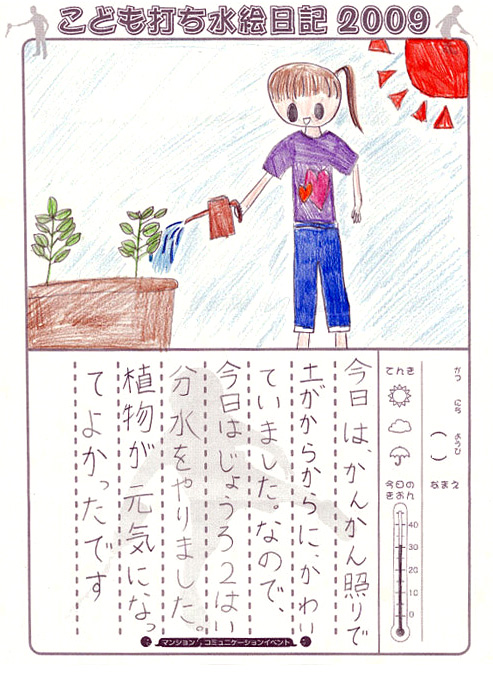 こども打ち水絵日記 2009
がつ にち ようび
( )
なまえ
てんき
今日の
きおん
40
30
20
10
0
今日は、かんかん照りで
土がからからに、かわい
ていました。なので、
今日はじょうろ2はい
分水をやりました。
植物が元気になっ
てよかったです
マンション・コミュニケーションイベント